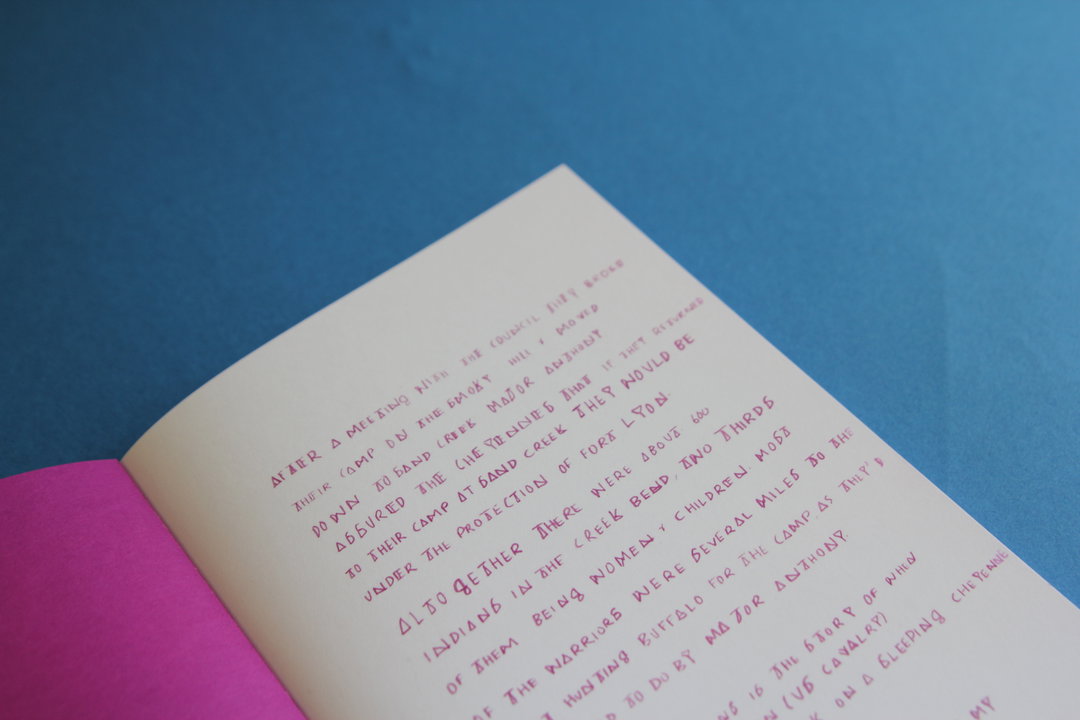 AFTER A MEETING WITH THE COUNCIL THEY BROKE
THEIR CAMP ON THE SMOKY HILL & MOVED
DOWN TO SAND CREEK MAJOR ANTHONY
ASSURED THE CHEYENNES THAT IF THEY RETURNED
TO THEIR CAMP AT SAND CREEK THEY WOULD BE
UNDER THE PROTECTION OF FORT LYON.
ALTOGETHER THERE WERE ABOUT 600
INDIANS IN THE CREEK BEND, TWO THIRDS
OF THEM BEING WOMEN & CHILDREN. MOST
OF THE WARRIORS WERE SEVERAL MILES TO THE
HUNTING BUFFALO FOR THE CAMP AS THEY'D
TO DO BY MAJOR ANTHONY.
IS THE STORY OF WHEN
(US CAVALRY)
ON A SLEEPING CHEYENNE
MY